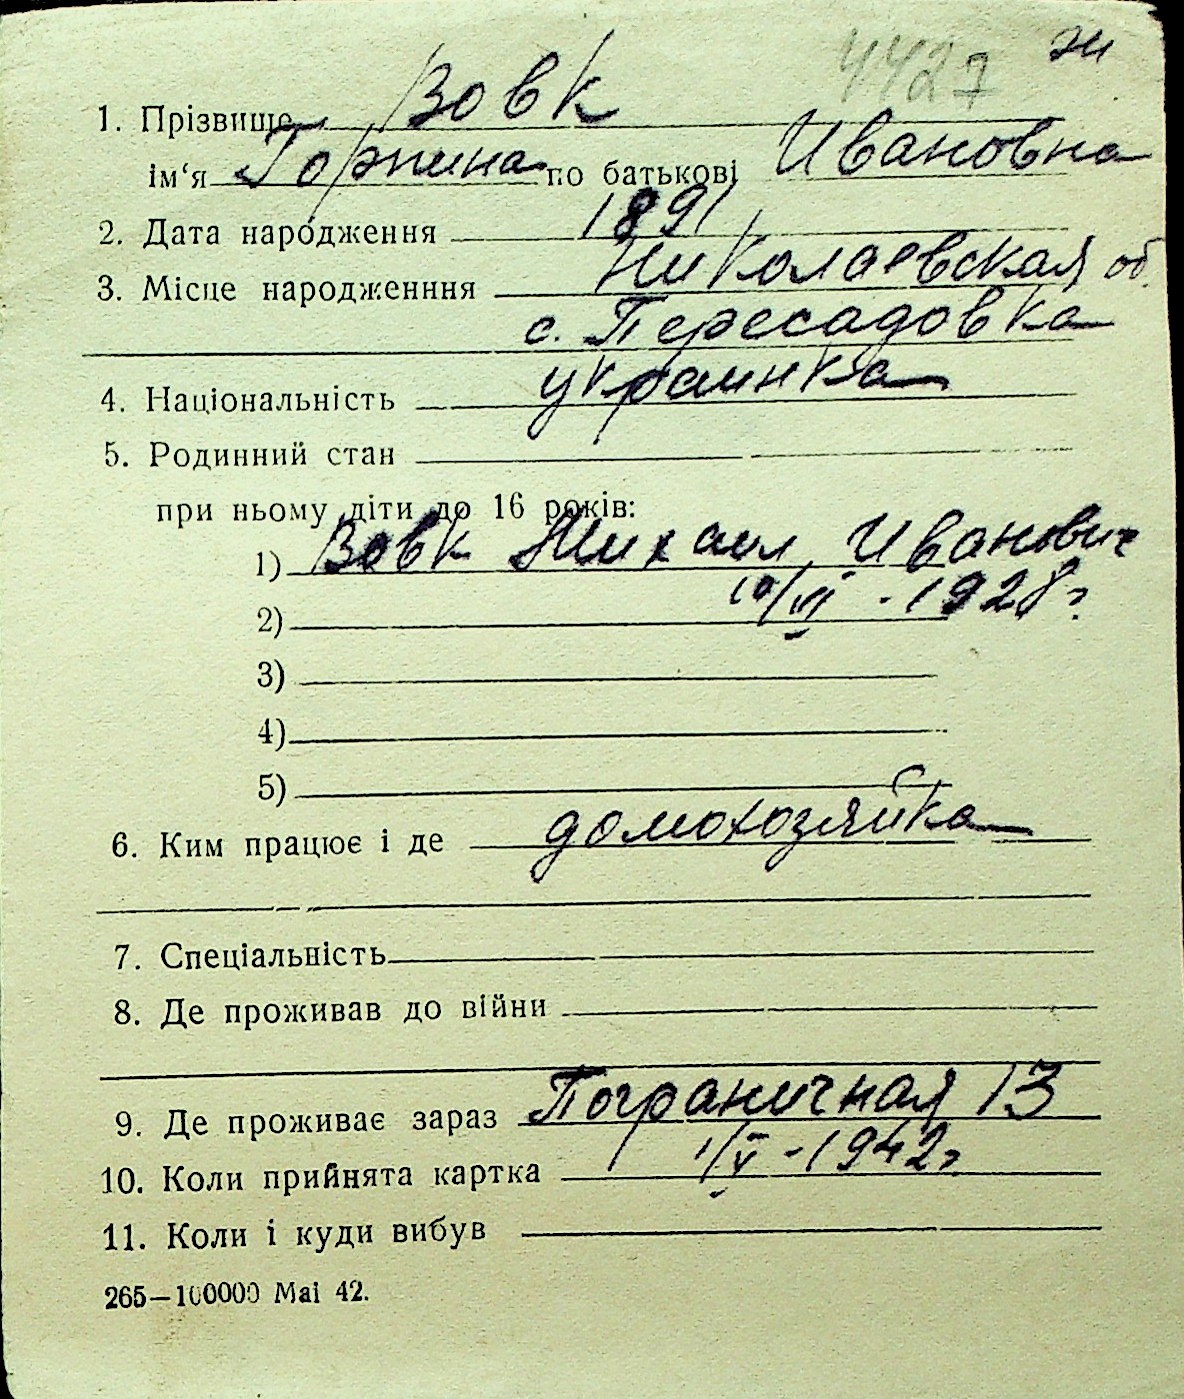 4427 ж
1. Прізвище Вовк
ім'я Горпина по батькові Ивановна
2. Дата народження 1891
3. Місце народженння Николаевская об.
с. Пересадовка
4. Національність украинка
5. Родинний стан
при ньому діти до 16 років:
1) Вовк Михаил Иванович
2) 10/VI - 1928 г
3)
4)
5)
6. Ким працює і де домохозяйка
7. Спеціальність
8. Де проживав до війни
9. Де проживає зараз Пограничная 13
10. Коли прийнята картка 1/V - 1942 г.
11. Коли і куди вибув
265—100000 Mai 42.